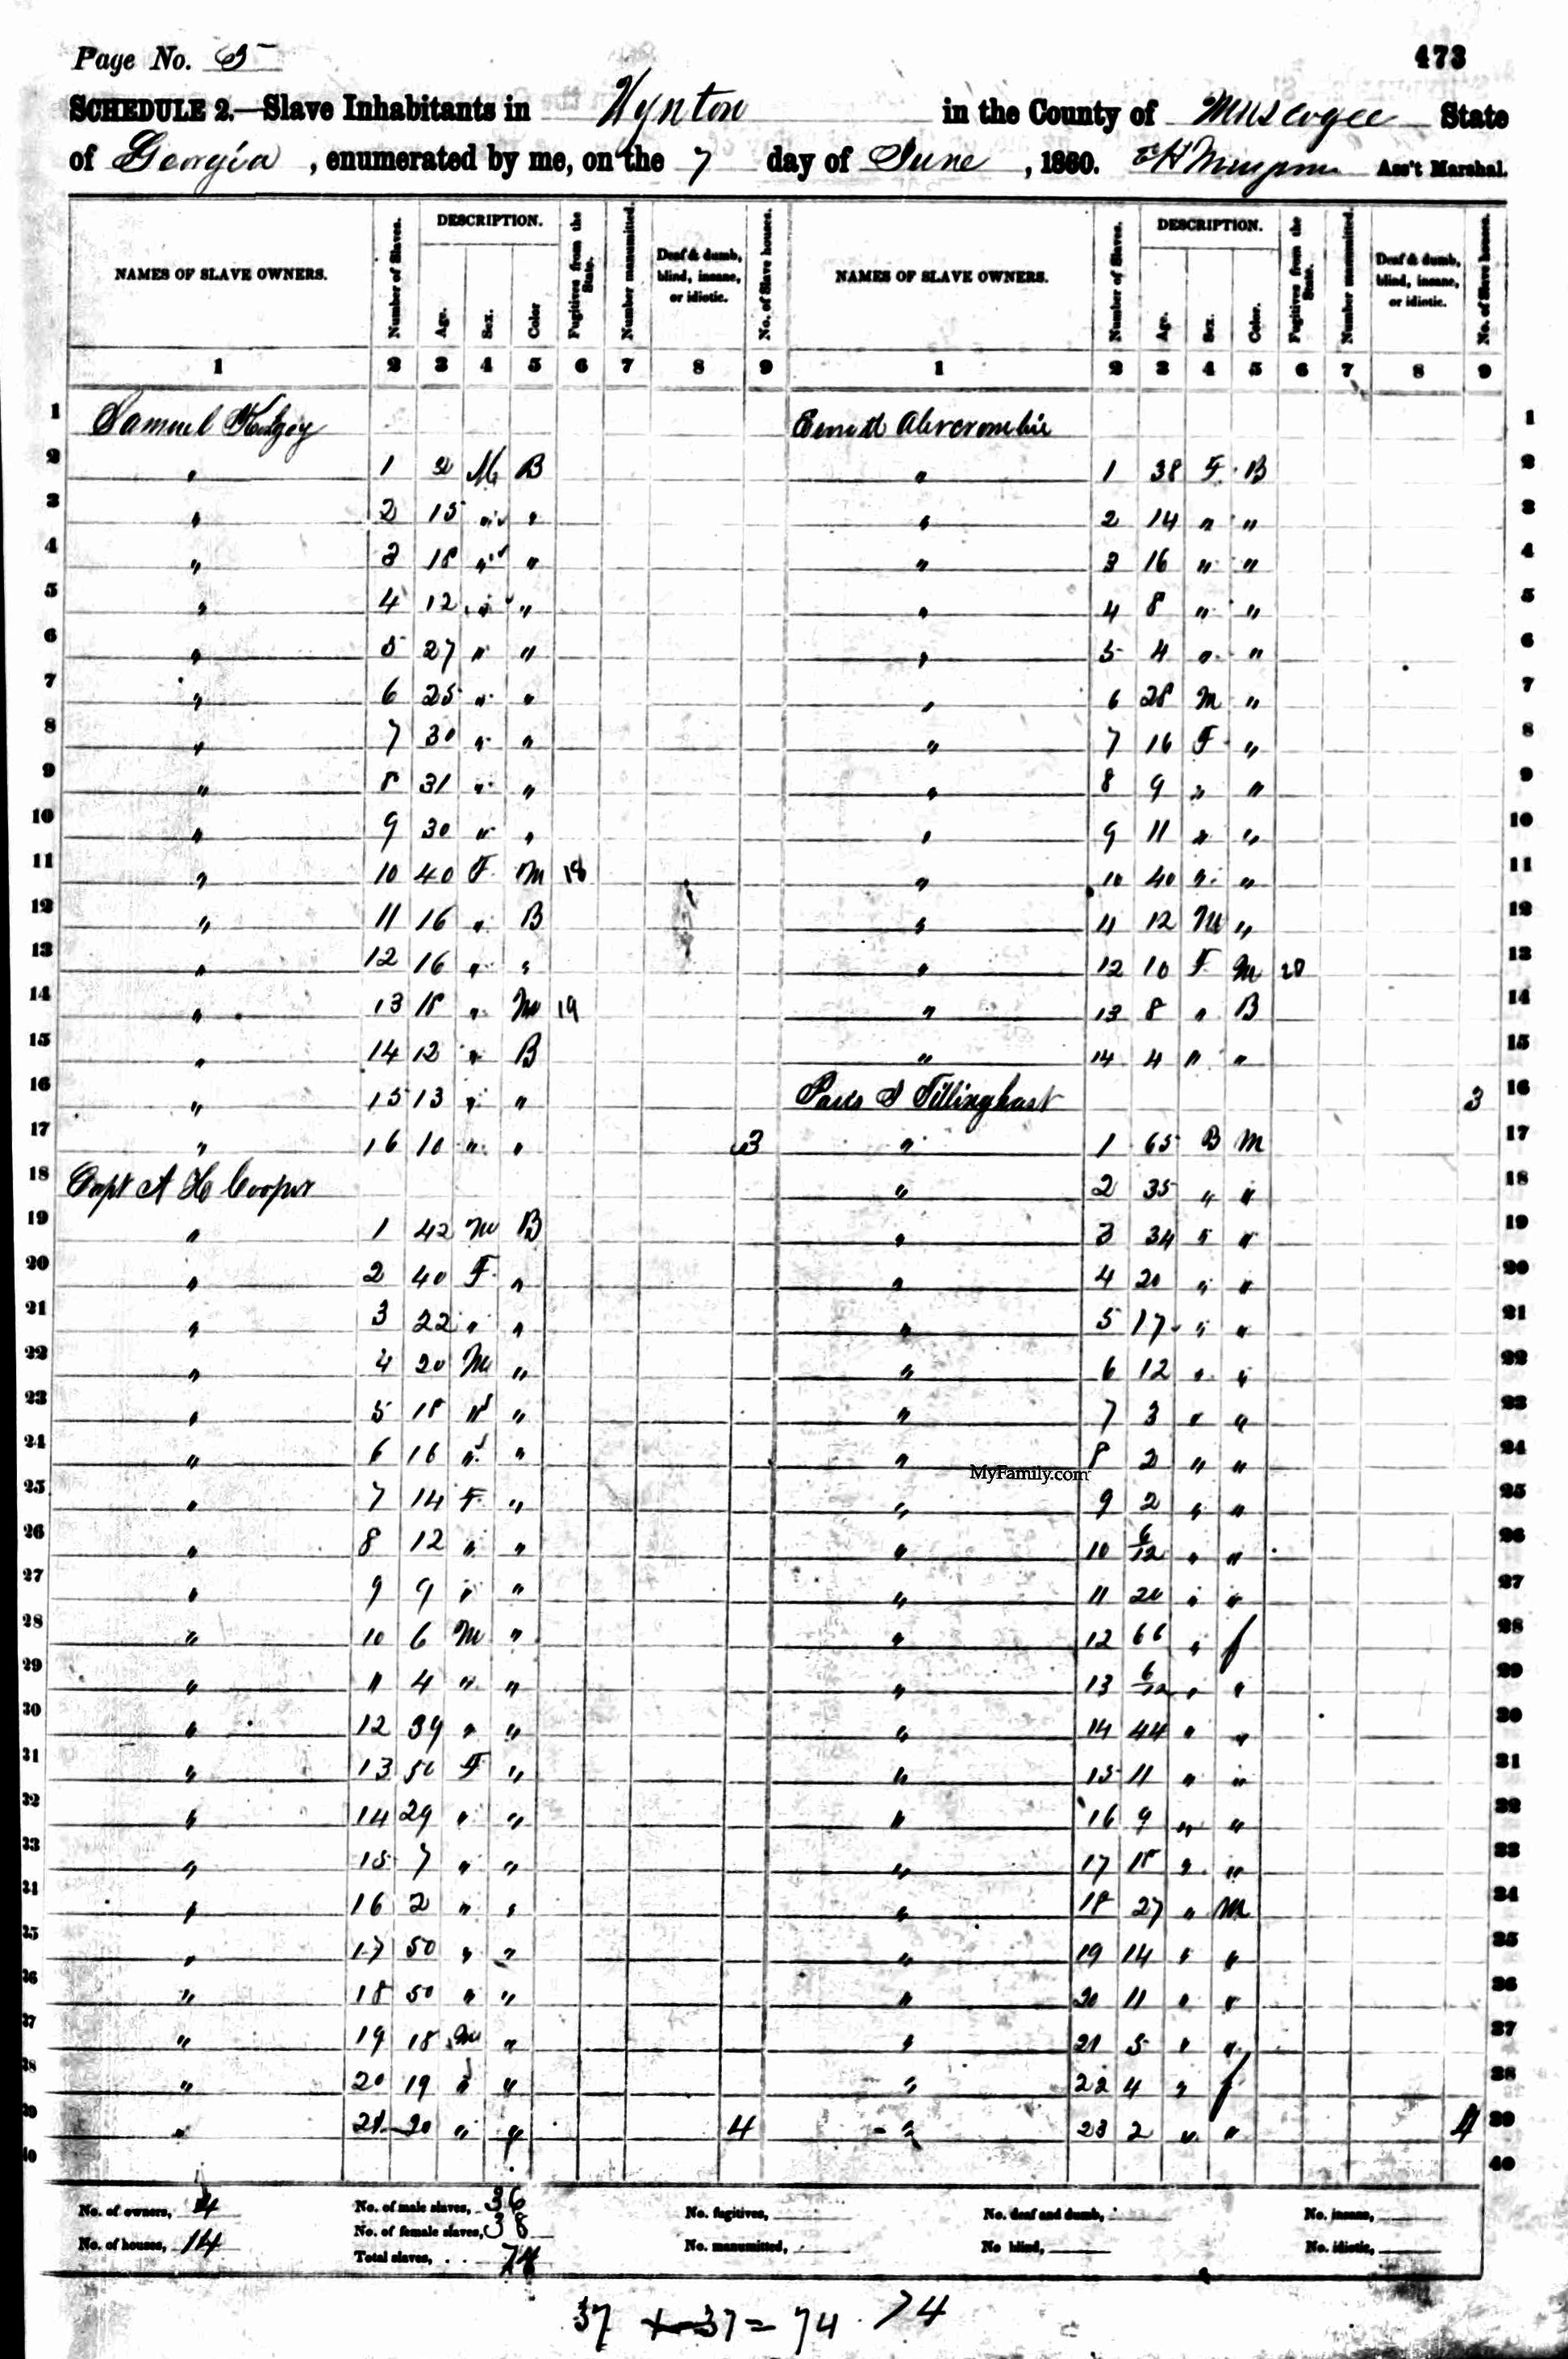 Page No. 5
473
SCHEDULE 2.—Slave Inhabitants in Wynton in the County of Muscogee State
of Georgia, enumerated by me, on the 7 day of June, 1860. Ass't Marshal.
NAMES OF SLAVE OWNERS. Number of Slaves. DESCRIPTION. Age. Sex. Color Fugitives from the State. Number manumitted. Deaf & dumb, blind, insane, or idiotic. No. of Slave houses. NAMES OF SLAVE OWNERS. Number of Slaves. DESCRIPTION. Age. Sex. Color. Fugitives from the State. Number manumitted. Deaf & dumb, blind, insane, or idiotic. No. of Slave houses.
1 2 3 4 5 6 7 8 9 1 2 3 4 5 6 7 8 9
1 Samuel Abercrombie 1
2 " 1 M B " 1 38 F B 2
3 " 2 15 " " " 2 14 " " 3
4 " 3 18 " " " 3 16 " " 4
5 " 4 12 " " " 4 8 " " 5
6 " 5 27 " " " 5 4 " " 6
7 " 6 25 " " " 6 28 M " 7
8 " 7 30 " " " 7 16 F " 8
9 " 8 31 " " " 8 9 " " 9
10 " 9 30 " " " 9 11 " " 10
11 " 10 40 F M 18 " 10 40 " " 11
12 " 11 16 " B " 11 12 M " 12
13 " 12 16 " " " 12 10 F M 20 13
14 " 13 18 " M 19 " 13 8 " B 14
15 " 14 12 " B " 14 4 " " 15
16 " 15 13 " " Tillinghast 3 16
17 " 16 10 " " 3 " 1 65 B M 17
18 Capt A H Cooper " 2 35 " " 18
19 " 1 42 M B " 3 34 " " 19
20 " 2 40 F " " 4 20 " " 20
21 " 3 22 " " " 5 17 " " 21
22 " 4 20 M " " 6 12 " " 22
23 " 5 18 " " " 7 3 " " 23
24 " 6 16 " " " 8 2 " " 24
MyFamily.com
25 " 7 14 F " " 9 2 " " 25
26 " 8 12 " " " 10 6/12 " " 26
27 " 9 9 " " " 11 20 " " 27
28 " 10 6 M " " 12 66 " f 28
29 " 11 4 " " " 13 6/12 " " 29
30 " 12 39 " " " 14 44 " " 30
31 " 13 50 F " " 15 11 " " 31
32 " 14 29 " " " 16 9 " " 32
33 " 15 7 " " " 17 18 " " 33
34 " 16 2 " " " 18 27 " M 34
35 " 17 50 " " " 19 14 " " 35
36 " 18 50 " " " 20 11 " " 36
37 " 19 18 M " " 21 5 " " 37
38 " 20 19 " " " 22 4 " f 38
39 " 21 20 " " 4 " 23 2 " " 4 39
40 40
No. of owners, 4 No. of male slaves, 36 No. fugitives, No. deaf and dumb, No. insane,
No. of female slaves, 38
No. of houses, 14 Total slaves, 74 No. manumitted, No blind, No. idiotic,
37 + 37 = 74 74